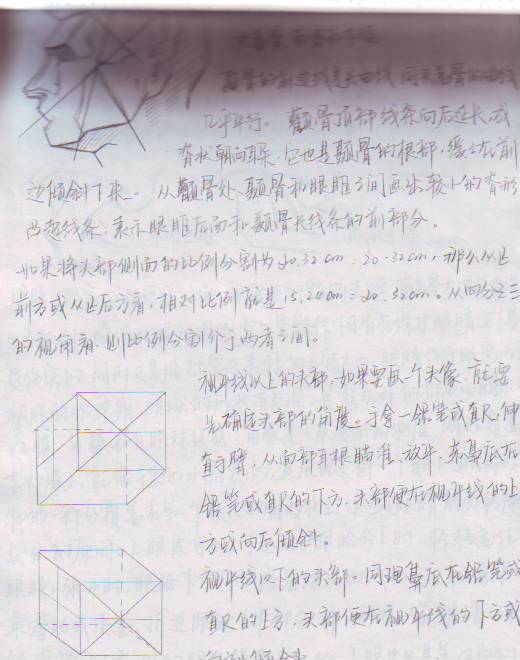 颧骨的前边线是长曲线,同头盖骨的曲线
几乎平行。颧骨顶部线条向后延长,成
脊状朝向耳朵,它也是颧骨的根部,缓缓在前
边倾斜下来。从颧骨处、颧骨和眼眶之间画出较小的脊形
凸起线条,表示眼眶后面和颧骨长线条的前部分。
如果将头部侧面的比例分割为20.32cm:20.32cm。那么从正
前方或从正后方看,相对比例就是15.24cm:20.32cm。从四分之三
的视角看,则比例分割介于两者之间。
视平线以上的头部,如果要画一个头像,就要
先确定头部的角度。手拿一铅笔或直尺,伸
直手臂,从面部耳根瞄准,放平,若鼻底在
铅笔或直尺的下方,头部便在视平线的上
方或向后倾斜。
视平线以下的头部。同理鼻底在铅笔或
直尺的上方,头部便在视平线的下方或
向前倾斜